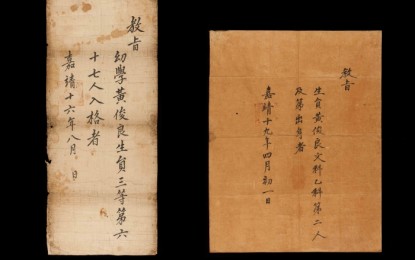 教旨
幼學黃俊良生員三等第六
十七人入格者
嘉靖十六年八月 日
教旨
生員黃俊良文科乙科第二人
及第出身者
嘉靖十九年四月初一日